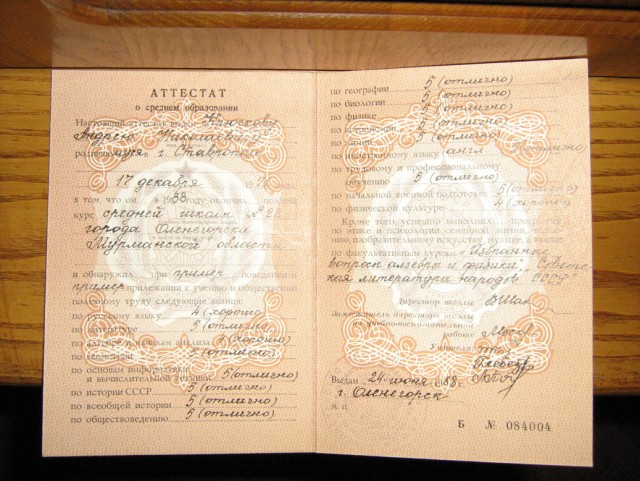 АТТЕСТАТ
о среднем образовании
Настоящий аттестат выдан
Андрею Николаевичу
в г. Ставрополь
17 декабря
в том, что он в 1988 году окончил полный
курс средней школы № 21
города Оленегорска
Мурманской области
и обнаружил при примерном поведении и
примерном прилежании к учению и общественно
полезному труду следующие знания:
по русскому языку 4 (хорошо)
по литературе 5 (отлично)
по алгебре и началам анализа (хорошо)
по геометрии 5 (отлично)
по основам информатики
и вычислительной техники 5 (отлично)
по истории СССР 5 (отлично)
по всеобщей истории 5 (отлично)
по обществоведению 5 (отлично)
по географии 5 (отлично)
по биологии 5 (отлично)
по физике 5 (отлично)
по астрономии 5 (отлично)
по химии 5 (отлично)
по иностранному языку англ 5 (отлично)
по трудовому и профессиональному
обучению 5 (отлично)
по начальной военной подготовке 5 (отлично)
по физической культуре 4 (хорошо)
Кроме того, успешно выполнил программу
по этике и психологии семейной жизни,
изобразительному искусству, музыке, а также
по факультативным курсам "Избранные
вопросы алгебры и физики", Советская
литература народов СССР
Директор школы
Заместитель директора школы
по учебно-воспитательной
работе
Учителя:
Выдан 24 июня 1988 г.
г. Оленегорск
М. П.
Б № 084004